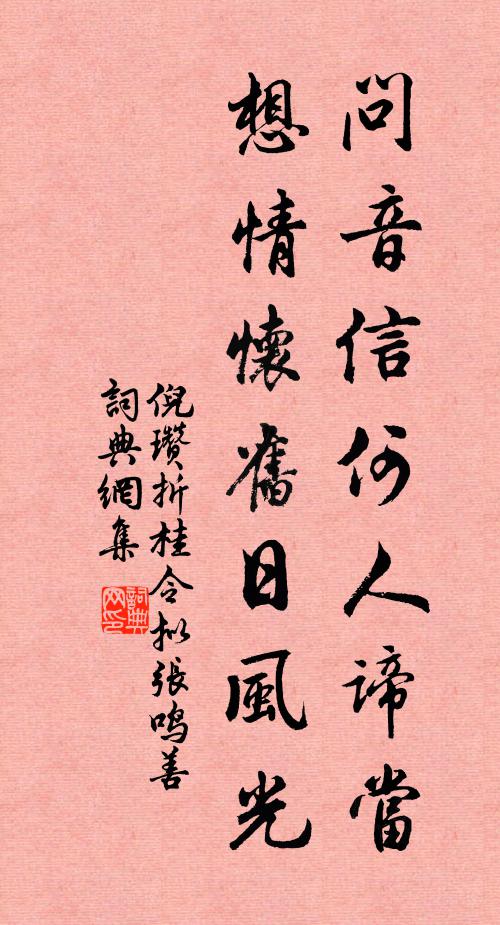 問音信何人諦當
想情懷舊日風光
倪瓚折桂令拟張鳴善
詞典網集
詞典
网印